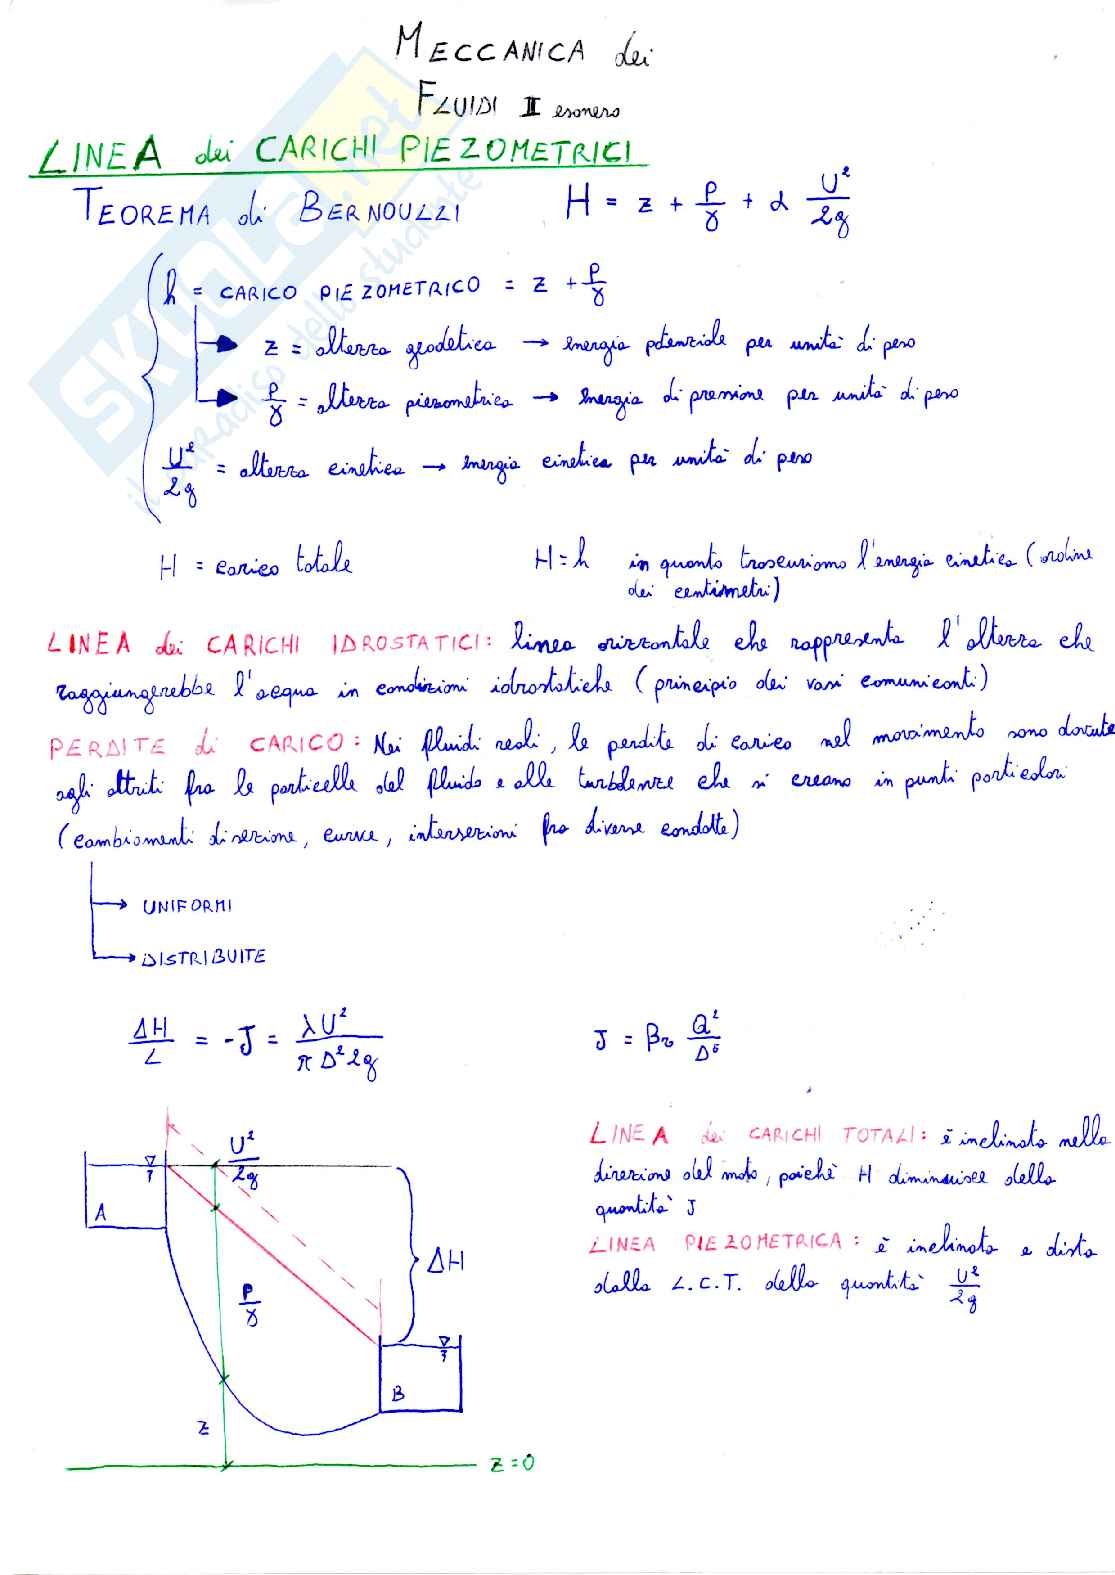 MECCANICA dei
FLUIDI II esonero
LINEA dei CARICHI PIEZOMETRICI
TEOREMA di BERNOULLI H = z + p/γ + α U²/2g
h = CARICO PIEZOMETRICO = z + p/γ
z = altezza geodetica → energia potenziale per unità di peso
p/γ = altezza piezometrica → energia di pressione per unità di peso
U²/2g = altezza cinetica → energia cinetica per unità di peso
H = carico totale H = h in quanto trascuriamo l'energia cinetica (ordine
dei centimetri)
LINEA dei CARICHI IDROSTATICI: linea orizzontale che rappresenta l'altezza che
raggiungerebbe l'acqua in condizioni idrostatiche (principio dei vasi comunicanti)
PERDITE di CARICO: Nei fluidi reali, le perdite di carico nel movimento sono dovute
agli attriti fra le particelle del fluido e alle turbolenze che si creano in punti particolari
(cambiamenti di sezione, curve, intersezioni fra diverse condotte)
UNIFORMI
DISTRIBUITE
ΔH/L = -J = λU²/πD²2g J = βr Q²/D⁵
LINEA dei CARICHI TOTALI: è inclinata nella
direzione del moto, poichè H diminuisce della
quantità J
LINEA PIEZOMETRICA: è inclinata e dista
dalla L.C.T. della quantità U²/2g
U²/2g
A
ΔH
p/γ
B
z
z=0
SKUOLA.net
il paradiso dello studente